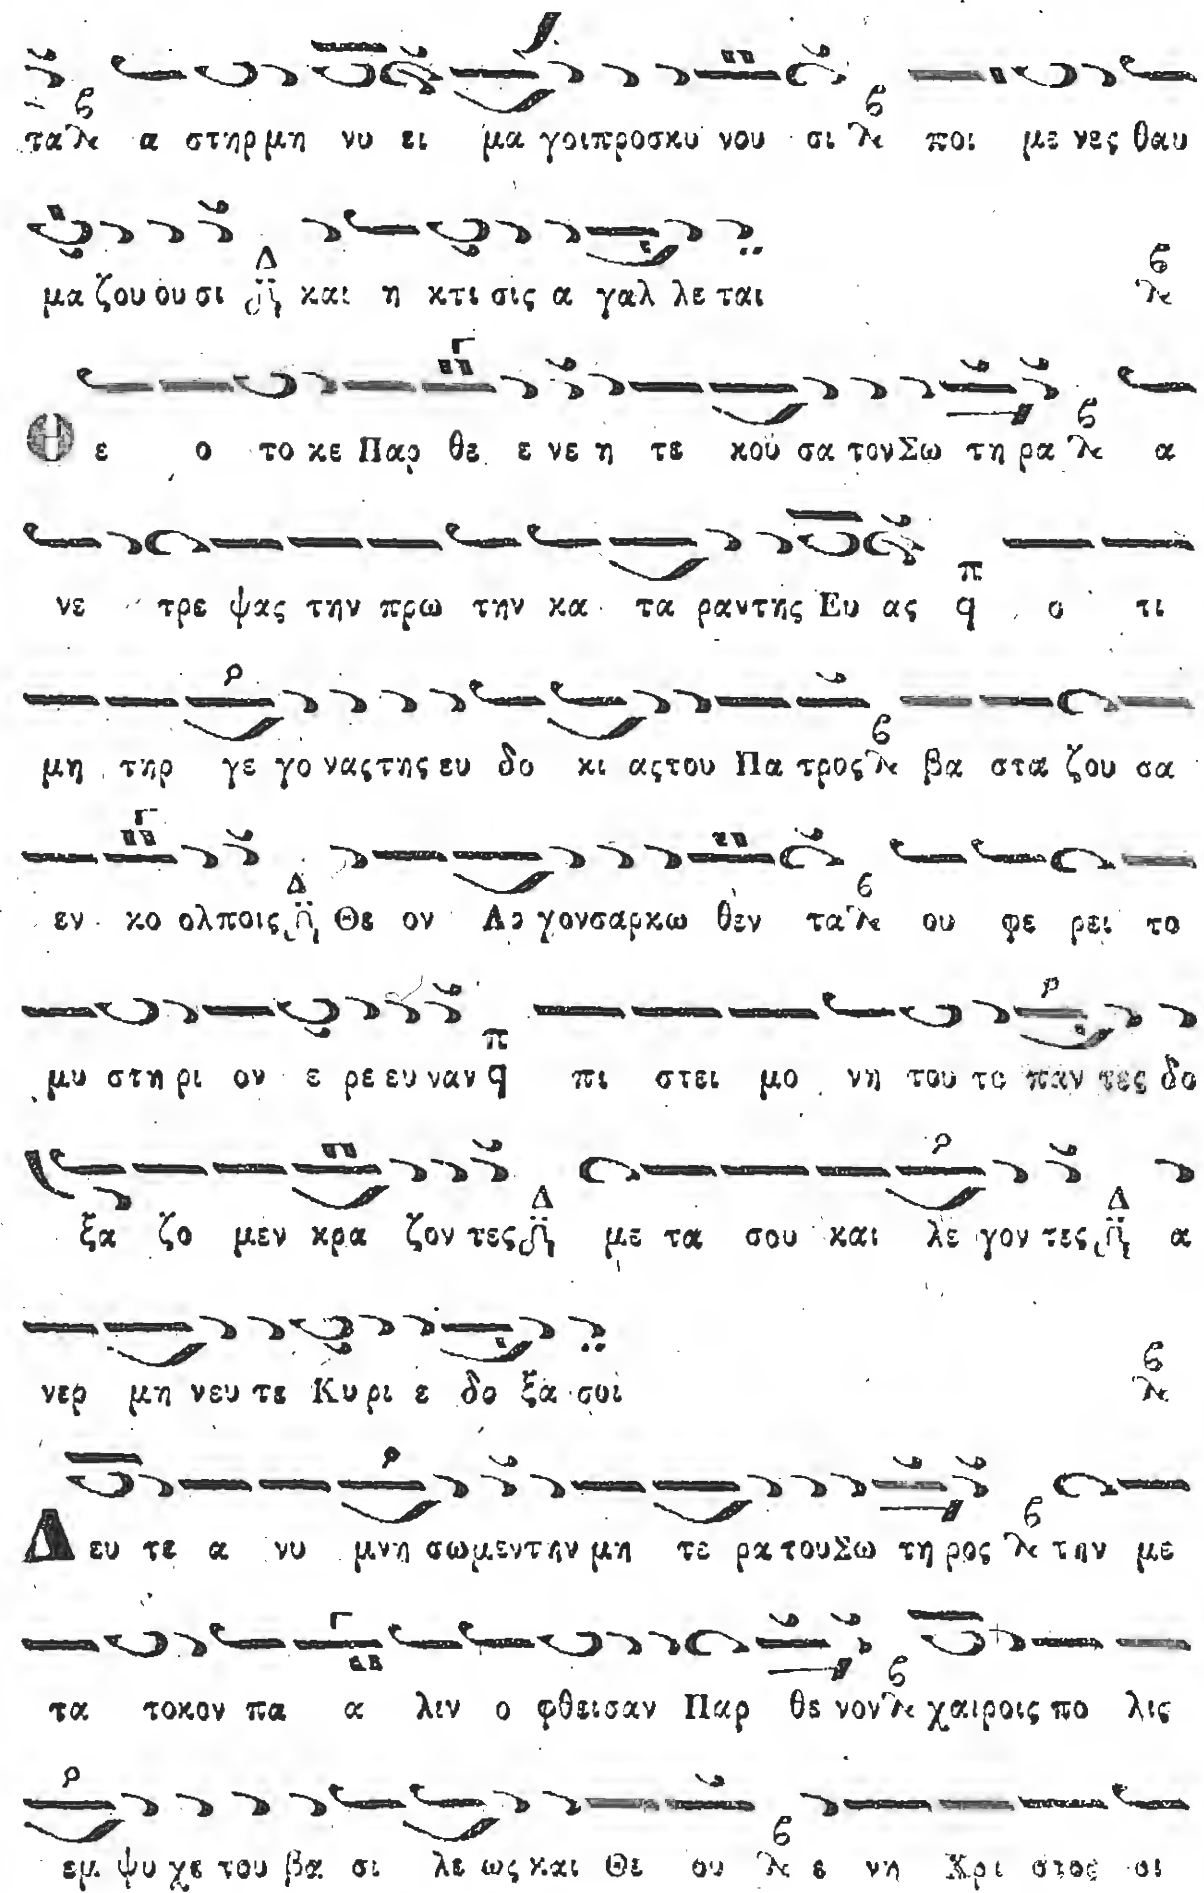 τα α στηρ μη νυ ει μα γοι προσκυ νου σι ποι με νες θαυ
μα ζου ου σι Δ και η κτι σις α γαλ λε ται
Θ ε ο το κε Παρ θε ε νε η τε κου σα τον Σω τη ρα α
νε τρε ψας την πρω την κα τα ραν της Ευ ας π q ο τι
μη τηρ γε γο νας της ευ δο κι ας του Πα τρος βα στα ζου σα
εν κο ολποις Δ Θε ον Λο γον σαρκω θεν τα ου φε ρει το
μυ στη ρι ον ε ρε ευ ναν π q πι στει μο νη του το παν τες δο
ξα ζο μεν κρα ζον τες Δ με τα σου και λε γον τες Δ α
νερ μη νευ τε Κυ ρι ε δο ξα σοι
Δ ευ τε α νυ μνη σωμεν την μη τε ρα του Σω τη ρος την με
τα τοκον πα α λιν ο φθεισαν Παρ θε νον χαιροις πο λις
εμ ψυ χε του βα σι λε ως και Θε ου ε νη Χρι στος οι